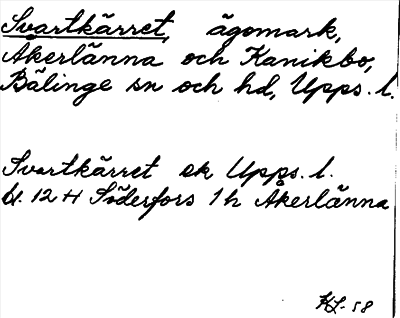 Svartkärret, ägomark,
Åkerlänna och Kanikbo,
Bälinge sn och hd, Upps. l.
Svartkärret ek Upps. l.
bl. 12 H Söderfors 1 h Åkerlänna
KL-58